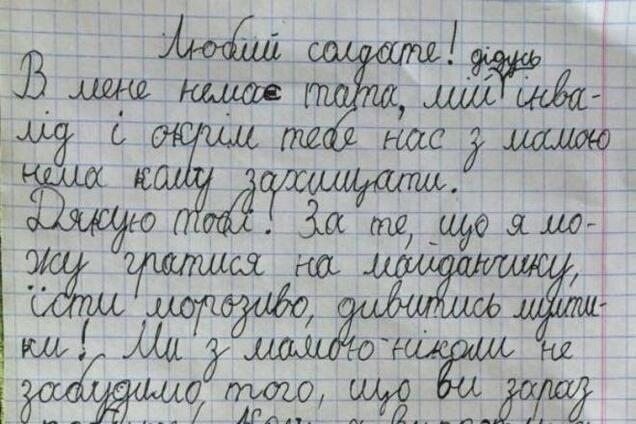 Любий солдате!
дідусь
В мене немає тата, мій інва-
лід і окрім тебе нас з мамою
нема кому захищати.
Дякую тобі! За те, що я мо-
жу гратися на майданчику,
їсти морозиво, дивитись мульти-
ки! Ми з мамою ніколи не
забудимо, того, що ви зараз